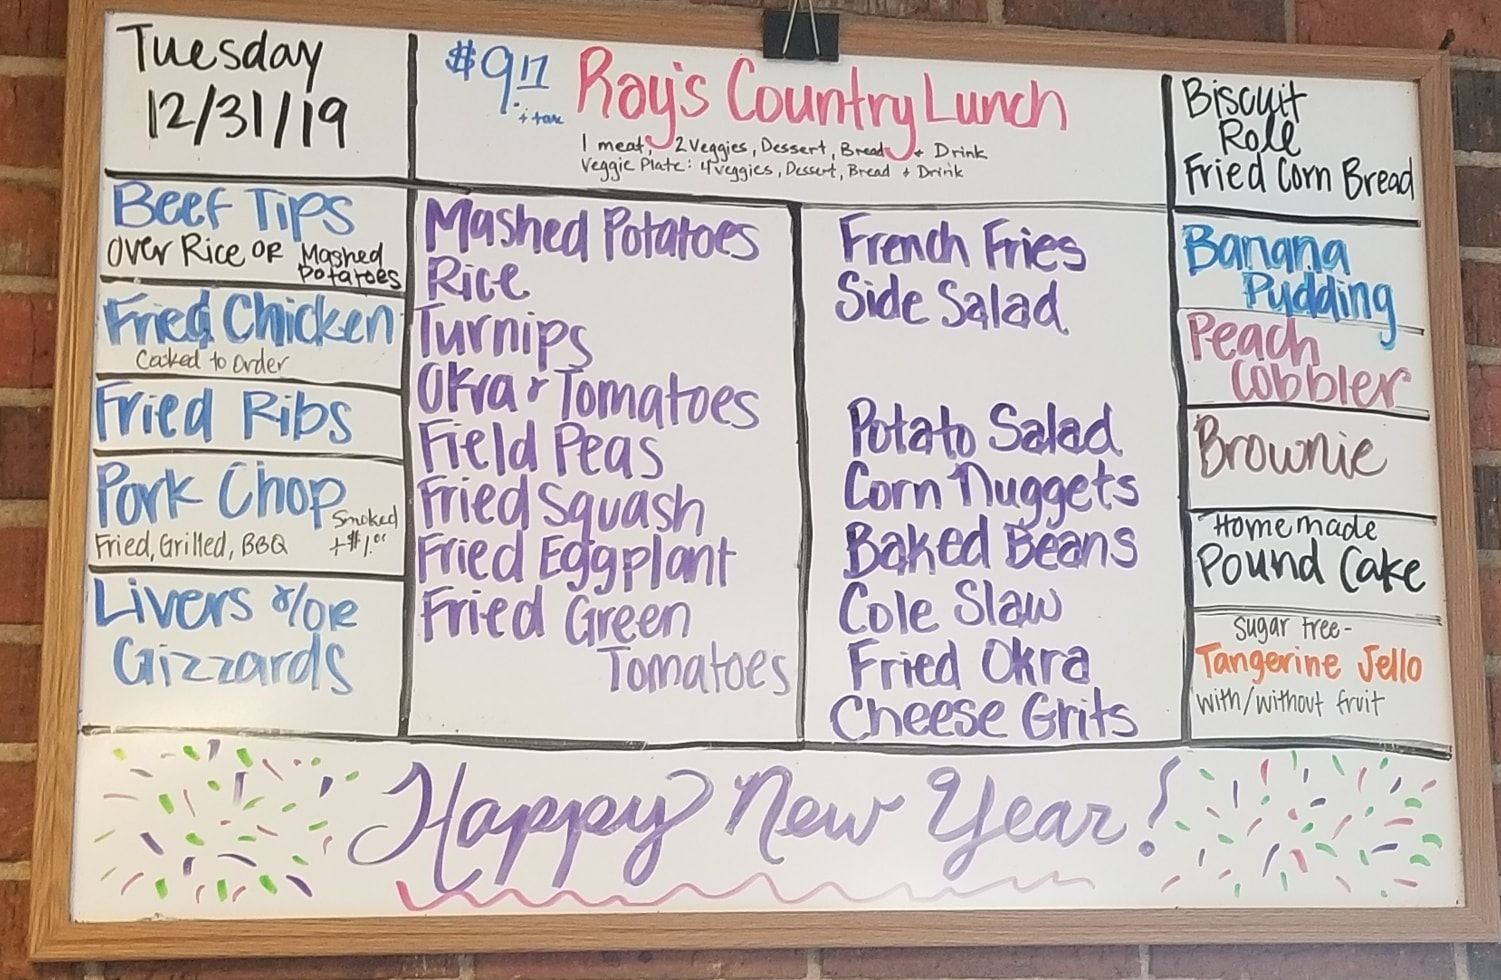 Tuesday
12/31/19
$9.17
+ tax
Ray's Country Lunch
1 meat, 2 Veggies, Dessert, Bread + Drink
Veggie Plate: 4 veggies, Dessert, Bread + Drink
Biscuit
Roll
Fried Corn Bread
Beef Tips
Over Rice or Mashed
Potatoes
Fried Chicken
Cooked to Order
Fried Ribs
Pork Chop
Smoked
Fried, Grilled, BBQ +$1.00
Livers &/or
Gizzards
Mashed Potatoes
Rice
Turnips
Okra & Tomatoes
Field Peas
Fried Squash
Fried Eggplant
Fried Green
Tomatoes
French Fries
Side Salad
Potato Salad
Corn Nuggets
Baked Beans
Cole Slaw
Fried Okra
Cheese Grits
Banana
Pudding
Peach
Cobbler
Brownie
Homemade
Pound Cake
Sugar Free-
Tangerine Jello
with/without fruit
Happy New Year!